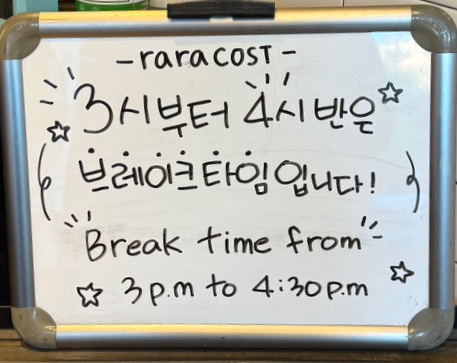 -rara cost-
3시부터 4시반은
브레이크타임입니다!
Break time from
3p.m to 4:30p.m